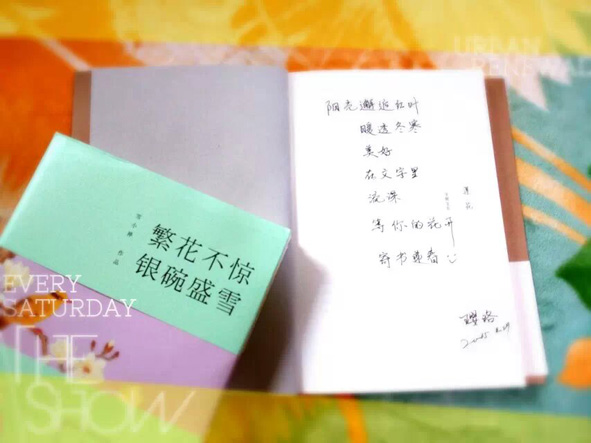 EVERY
SATURDAY
THE
SHOW
URBAN
RENEWAL
繁花不惊
银碗盛雪
作品
阳光邂逅红叶
暖透冬寒
美好
在文字里
流淌
等你的花开
寄书迎春